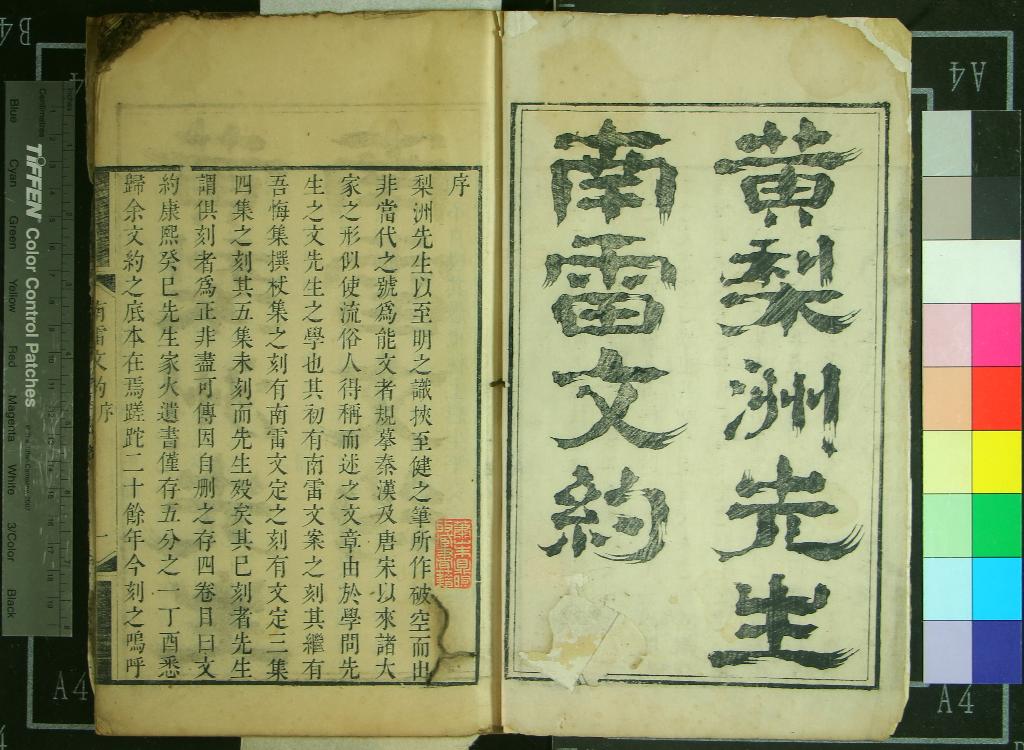 黄梨洲先生
南雷文約
序
梨洲先生以至明之識挾至健之筆所作破空而出
非當代之號為能文者規摹秦漢及唐宋以來諸大
家之形似使流俗人得稱而述之文章由於學問先
生之文先生之學也其初有南雷文案之刻其繼有
吾悔集撰杖集之刻有南雷文定之刻有文定三集
四集之刻其五集未刻而先生歿矣其已刻者先生
謂俱刻者為正非盡可傳因自刪之存四卷目曰文
約康熙癸巳先生家火遺書僅存五分之一丁酉悉
歸余文約之底本在焉蹉跎二十餘年今刻之嗚呼
南雷文約 序
一
TIFFEN Color Control Patches
Centimetres
Inches
Blue
Cyan
Green
Yellow
Red
Magenta
White
3/Color
Black
B4
A4
A4
A4
A4